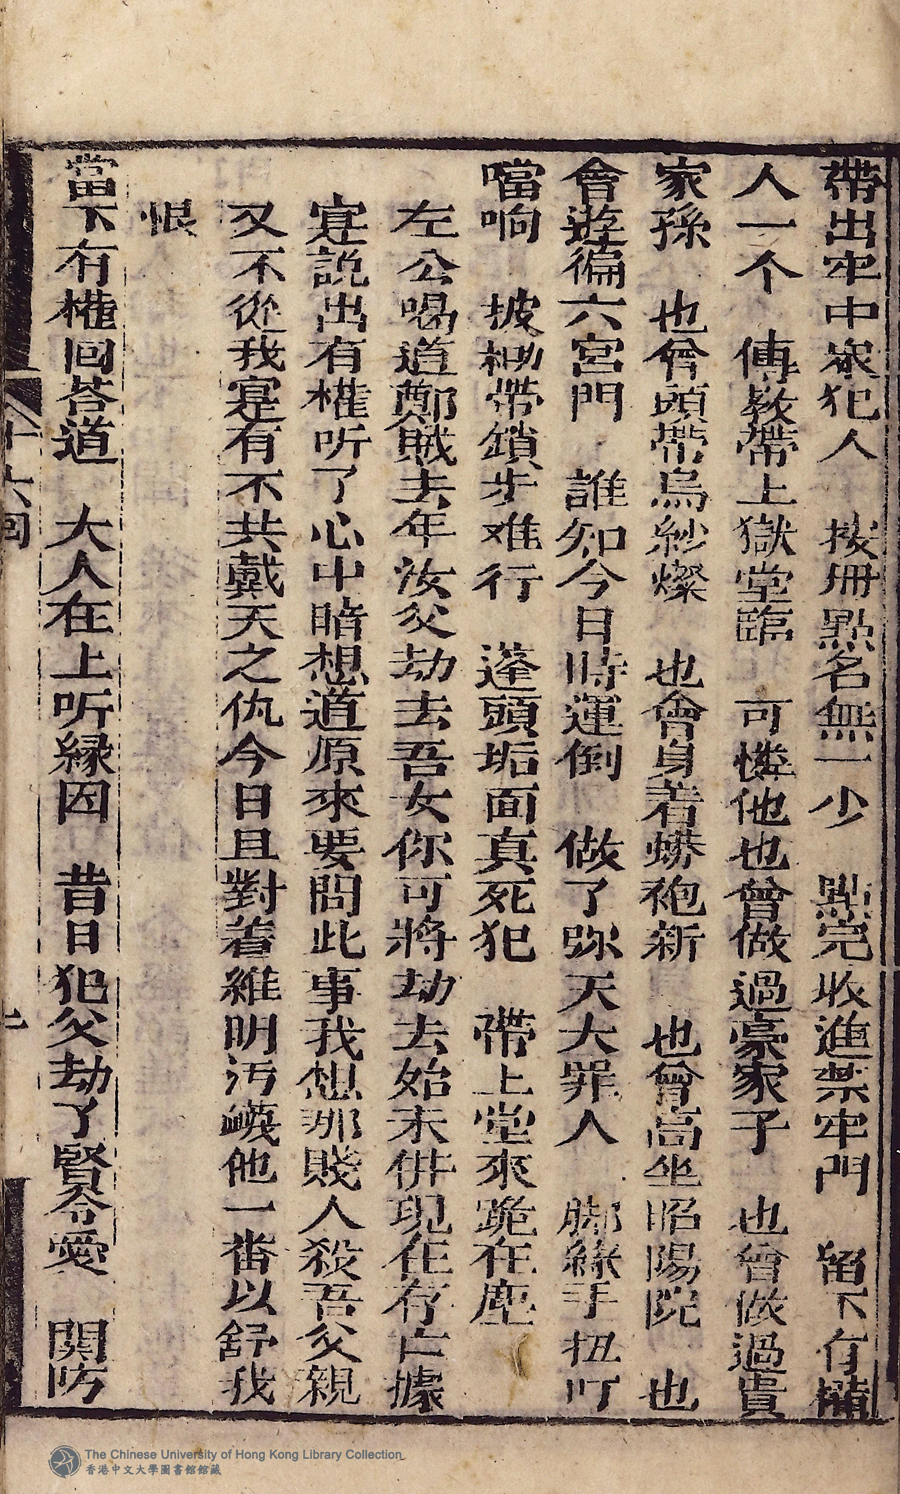 帶出牢中衆犯人　按冊點名無一少　點完收進禁牢門　留下有權
人一个　傳教帶上獄堂臨　可憐他也曾做過豪家子　也曾做過貴
家孫　也曾頭帶烏紗燦　也會身着蟒袍新　也曾高坐昭陽院　也
會遊徧六宮門　誰知今日時運倒　做了弥天大罪人　脚繚手扭叮
噹响　披枷帶鎖步难行　蓬頭垢面真死犯　帶上堂來跪在塵
左公喝道鄭賊去年汝父劫去吾女你可將劫去始末併現在存亡據
寔説出有權听了心中暗想道原來要問此事我想那賤人殺吾父親
又不從我寔有不共戴天之仇今日且對着維明污衊他一畨以舒我
恨
當下有權囬荅道　大人在上听縁因　昔日犯父劫了賢令愛　関防
十六囬
The Chinese University of Hong Kong Library Collection
香港中文大學圖書館館藏